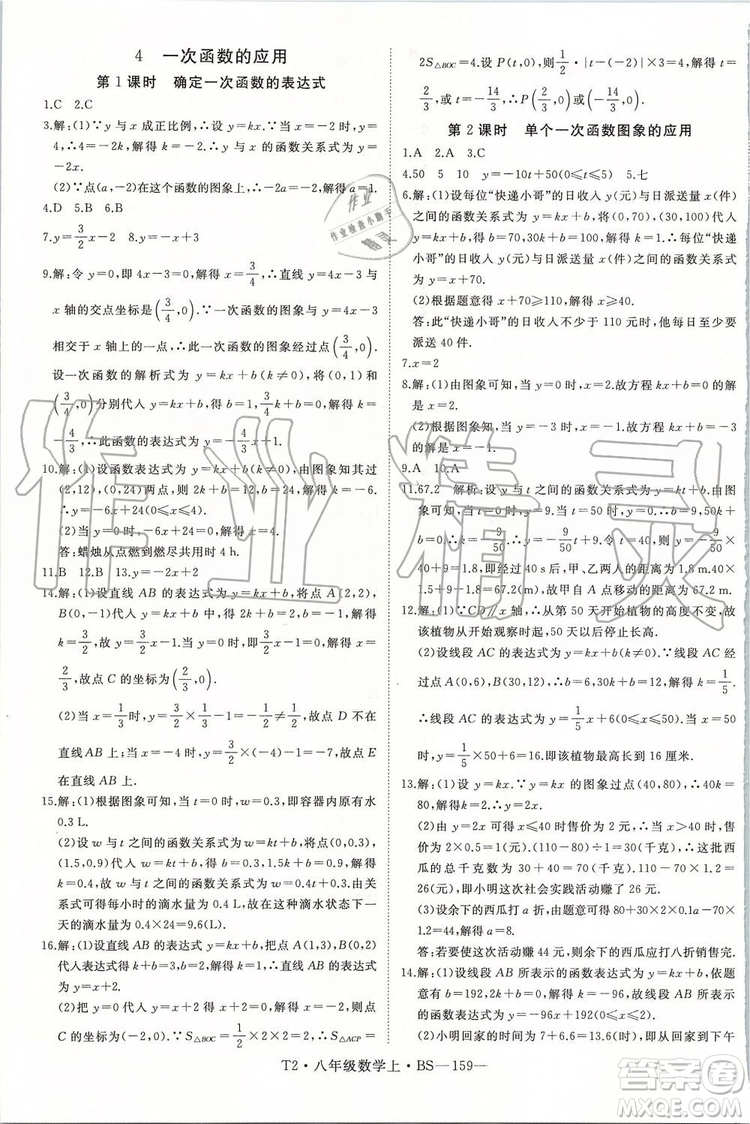 4　一次函数的应用
第1课时　确定一次函数的表达式
1.C　2.C
3.解:(1)∵y 与 x 成正比例,∴设 y=kx,∵当 x=-2 时,y=
4,∴4=-2k,解得 k=-2,∴y 与 x 的函数关系式为 y=
-2x.
(2)∵点(a,-2)在这个函数的图象上,∴-2a=-2,解得 a=1.
4.D　5.B　6.B
7.y=3/2x-2　8.y=-x+3
9.解:令 y=0,即 4x-3=0,解得 x=3/4,∴直线 y=4x-3 与
x 轴的交点坐标是(3/4,0).∵一次函数的图象与 y=4x-3
相交于 x 轴上的一点,∴交点坐标为(3/4,0).
设一次函数的解析式为 y=kx+b(k≠0),将(0,1)和
(3/4,0)分别代入 y=kx+b,得 b=1,3/4k+b=0.解得 k=
-4/3,∴此函数的表达式为 y=-4/3x+1.
10.解:(1)设函数表达式为 y=kx+b,由图象知其过
(2,12),(0,24)两点,则 2k+12,b=24,解得 k=-6.
∴y=-6x+24(0≤x≤4).
(2)当 y=0 时,-6x+24=0,解得 x=4.
答:蜡烛从点燃到燃尽共用时 4 h.
11.B　12.B　13.y=-x+2
14.解:(1)设直线 AB 的表达式为 y=kx+b,将点 A(2,2),
B(0,-1)代入 y=kx+b 中,得 b=-1,2k+b=2.解得 k
=3/2,∴直线 AB 的表达式为 y=3/2x-1.当 y=0 时,x
=2/3,故点 C 的坐标为(2/3,0).
(2)当 x=-1 时,y=3/2×(-1)-1≠-2,故点 D 不在
直线 AB 上;当 x=4 时,y=3/2×4-1=5,故点 E
在直线 AB 上.
15.解:(1)根据图象可知,当 t=0 时,W=0.3,即容器内原有水
0.3 L.
(2)设 w 与 t 之间的函数关系式为 w=kt+b,将点(0,0.3),
(1.5,0.9)代入,得 b=0.3,1.5k+b=0.9,解得 k=0.4.
故 w 与 t 之间的函数关系式为 w=0.4t+0.3.由关
系式可得每小时滴水量为 0.4 L,故在这种滴水状态下一
天的滴水量为 0.4×24=9.6(L).
16.解:(1)设直线 AB 的表达式为 y=kx+b,把点 A(1,3),B(0,2)
代入表达式得 k+b=3,b=2,解得 k=1,∴直线 AB 的表达
式为 y=x+2.
(2)把 y=0 代入 y=x+2 得 x+2=0,解得 x=-2,则点
C 的坐标为(-2,0).∵S△BOC=1/2×2×2=2,∴S△ACP=
2S△BOC=4.设 P(t,0),则 1/2·|t-(-2)|×3=4,解得 t=
2/3,或 t=-14/3,∴点 P 的坐标为(2/3,0)或(-14/3,0).
第2课时　单个一次函数图象的应用
1.A　2.A　3.C
4.50　5　10　y=-10t+50(0≤t≤5)　5.七
6.解:(1)设每位“快递小哥”的日收入 y(元)与日派送量 x(件)
之间的函数关系式为 y=kx+b,将(0,70),(30,100)代入
得 b=70,30k+b=100,解得 k=1,∴每位“快递
小哥”的日收入 y(元)与日派送量 x(件)之间的函数关系
式为 y=x+70.
(2)根据题意得 x+70≥110,解得 x≥40.
答:此“快递小哥”的日收入不少于 110 元,则他至少要派
送 40 件.
7.x=2
8.解:(1)由图象可知,当 y=0 时,x=2.故方程 kx+b=0 的解
是 x=2.
(2)根据图象可知,当 y=-3 时,x=-1.故方程 kx+b=-3
的解是 x=-1.
9.A　10.A
11.67.2　解析:设 y 与 t 之间的函数关系式为 y=kt+b,由图
象可知,b=9,50k+b=0,解得 k=-9/50,∴y 与 t 之间的函数
关系式为 y=-9/50t+9,当 t=40 时,y=-9/50×
40+9=1.8,即经过 40 s 后,甲、乙两人的距离为 1.8 m.40×
1.5+9-1.8=67.2(m),故甲自 A 点移动的距离为 67.2 m.
12.解:(1)∵CD∥x 轴,∴从第 50 天开始植物的高度不变,故
该植物从开始观察时起,50 天以后停止长高.
(2)设线段 AC 的表达式为 y=kx+b,∵线段 AC 经
过点 A(0,6),B(30,12),∴b=6,30k+b=12,解得 k=1/5.
∴线段 AC 的表达式为 y=1/5x+6(0≤x≤50).当 x=50
时,y=16,即该植物最高长到 16 厘米.
13.解:(1)设 y=kx,∵y=kx 的图象过点(40,80),∴40k=80,
解得 k=2.∴y=2x(0≤x≤40).
(2)由(1)得小明的降价前售价为 2 元.∴当 x>40 时售价为
2×0.5=1(元).由题意得(92-80)÷1=12(千克),∴西
瓜的总千克数为 40+12=52(千克),∴92-52×1.2-40=
26(元),即小明这次社会实践活动赚了 26 元.
(3)设余下的西瓜打 a 折,由题意得 2×12×a/10+80-52
×1.2-40=44,解得 a=8.
答:若要使这次活动赚 44 元,则余下的西瓜应打八折销售完.
14.解:(1)设线段 AB 所表示的函数关系式为 y=kx+b,依题
意有 b=192,2k+b=0,解得 k=-96,b=192,故线段 AB 所表示
的函数关系式为 y=-96x+192(0≤x≤2).
(2)小明回家的时间为 7+6.6=13.6(时),即小明回家时间为下午
T2·八年级数学上·BS—159—
作业精灵
作业检查小助手
答案圈
MXQE.COM